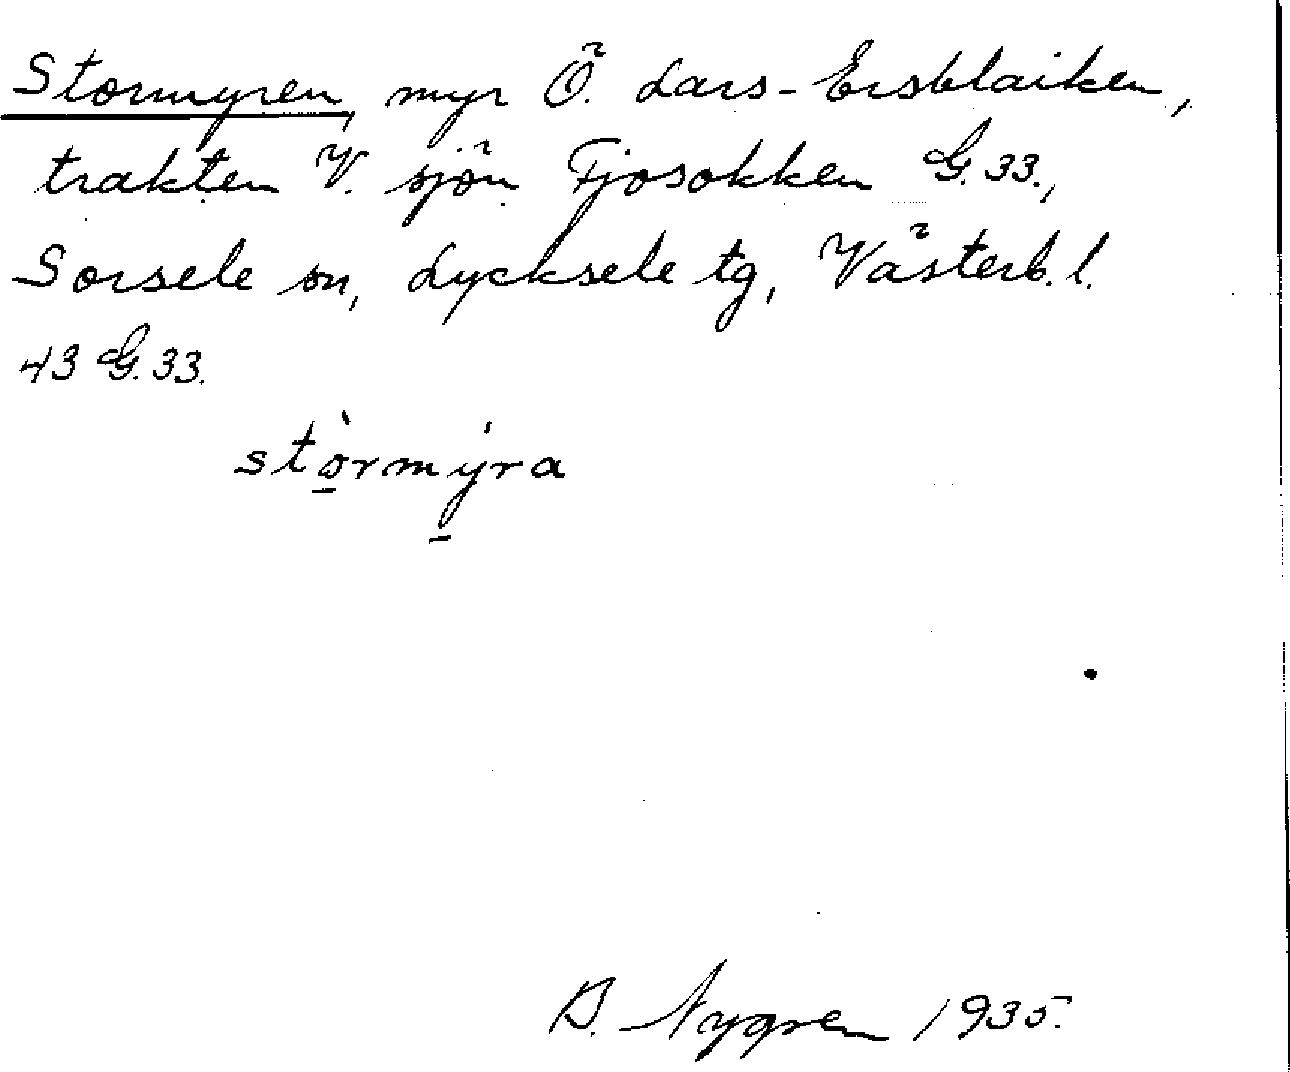 Stormyren, myr Ö. Lars-Ersblaiken,
trakten V. sjön Fjosokken G. 33.,
Sorsele sn, Lycksele tg, Västerb. l.
43 G. 33.
stò̠rmý̠ra
B. Nygren 1935.